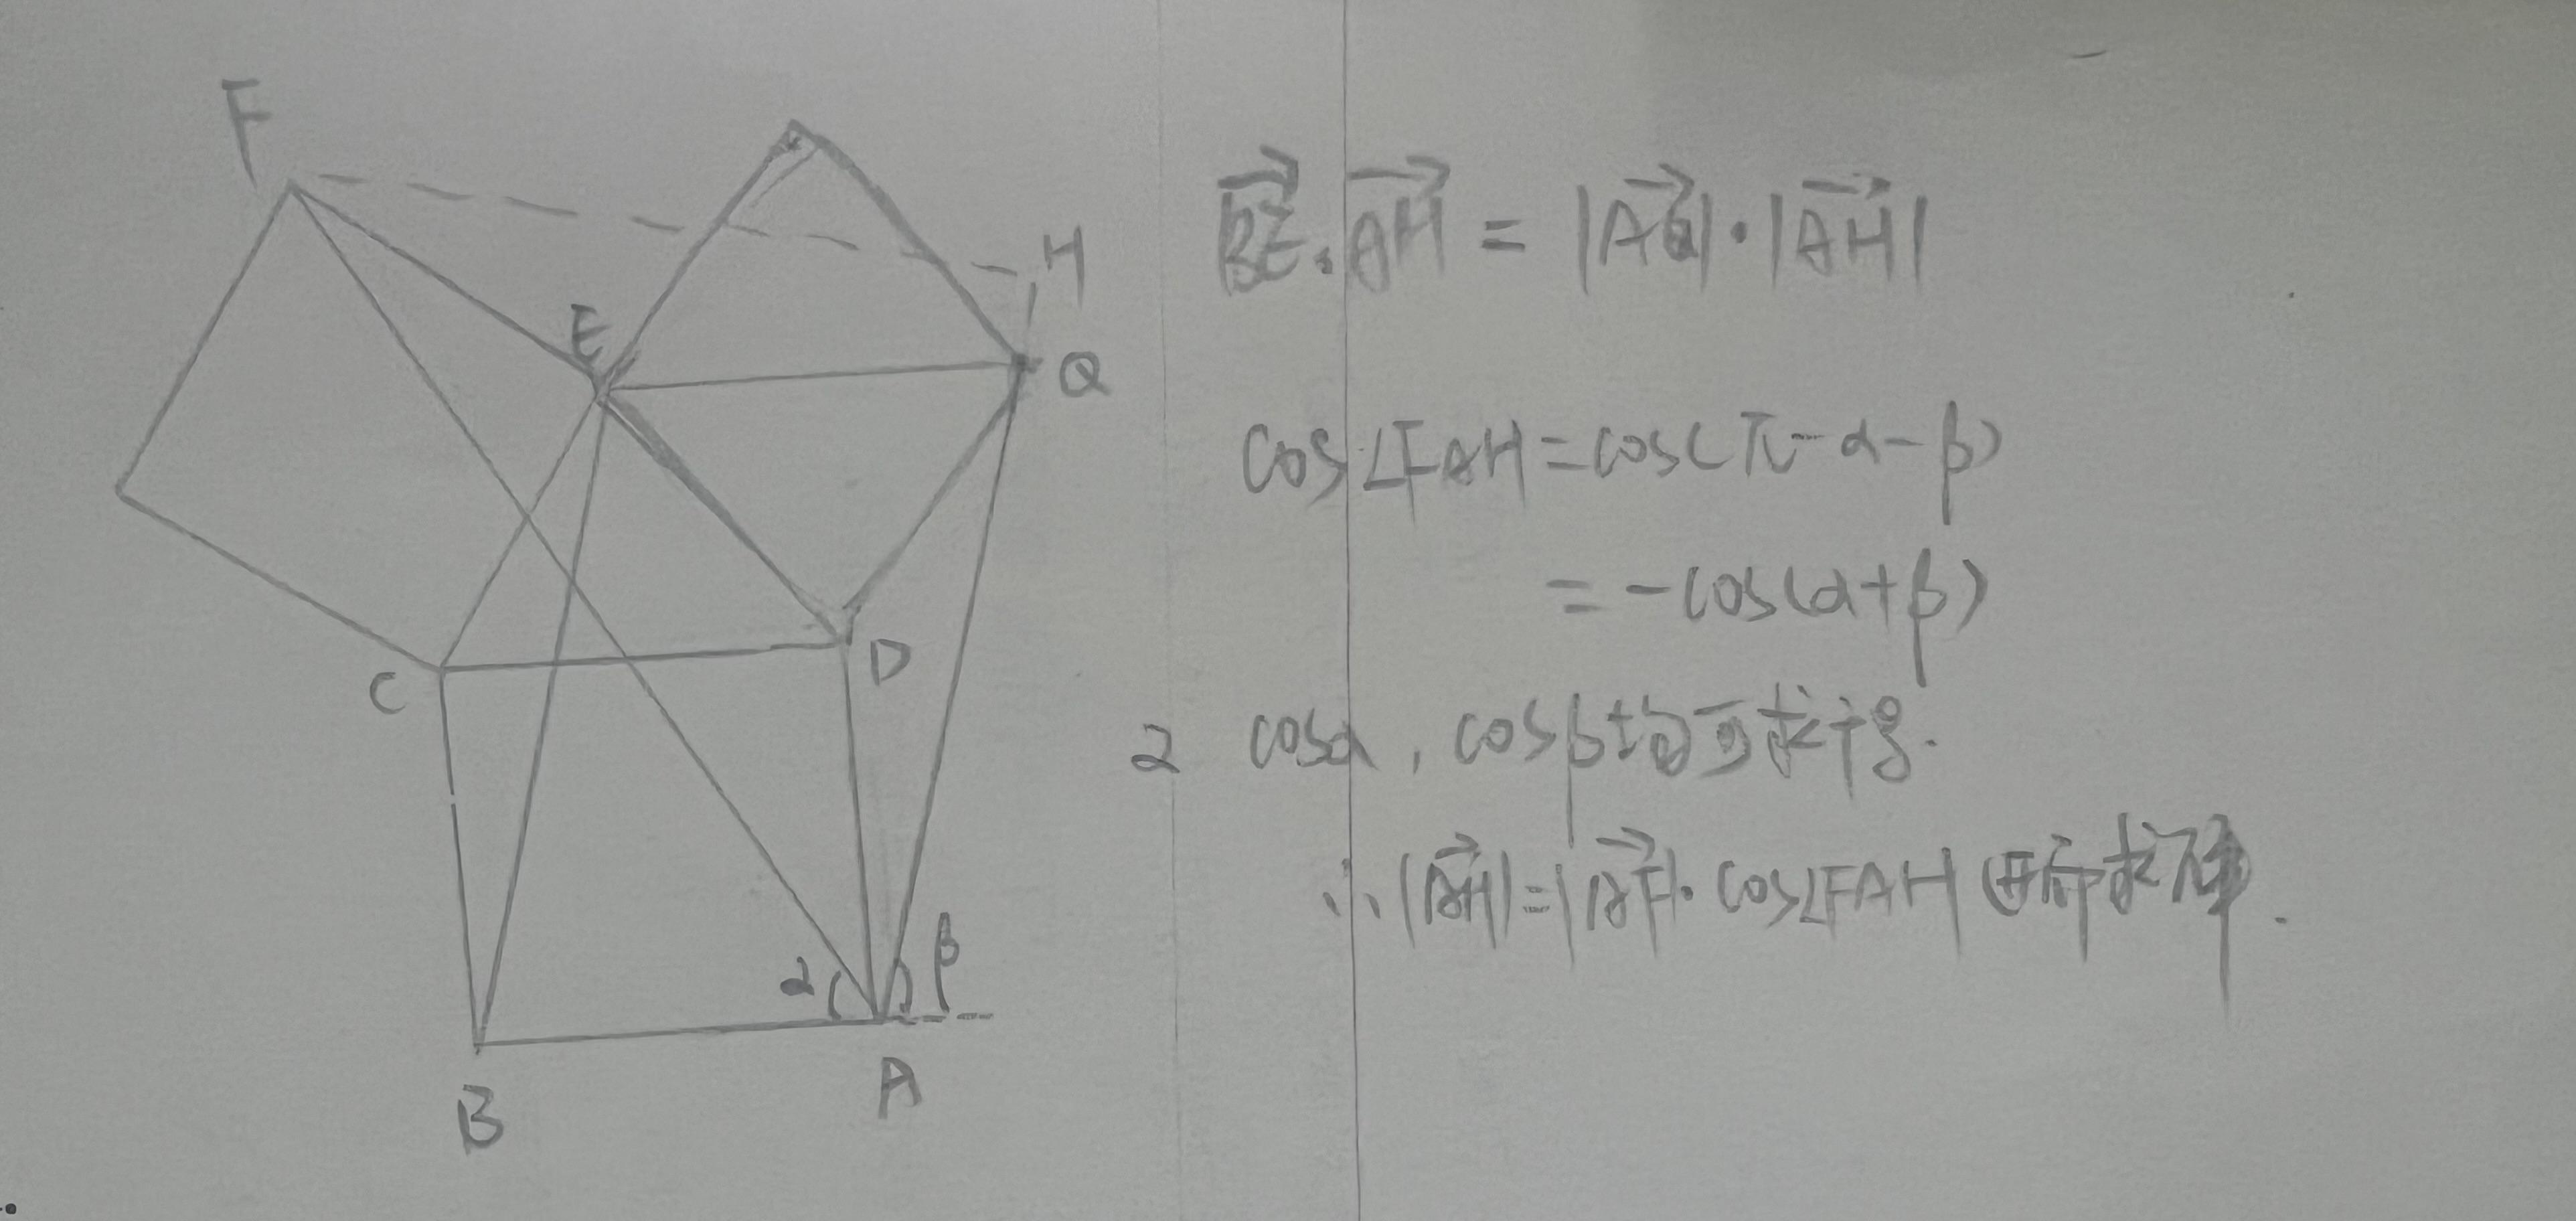 F
H
E
Q
C
D
α
β
B
A
BE·AH = |AQ|·|AH|
cos∠FAH=cos(π-α-β)
=-cos(α+β)
2 cosα, cosβ均可求得.
∴|AH|=|AF|·cos∠FAH 可求解.